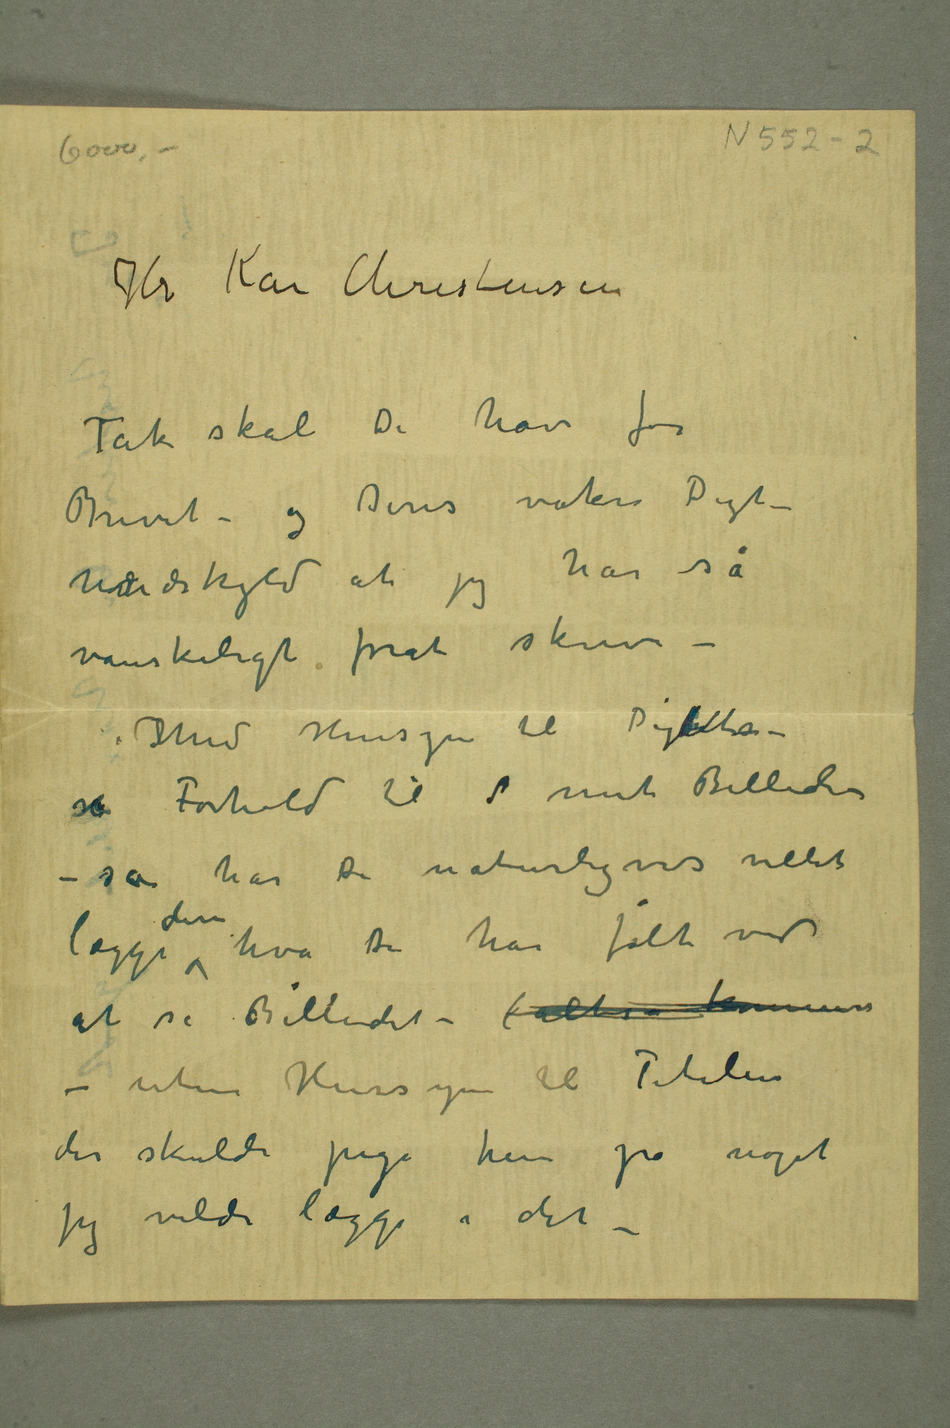 6000,-
N 552-2
Hr Kai Christensen
Tak skal De have for
Brevet – og Deres vakre Digt –
undskyld at jeg har så
vanskeligt forat skrive –
Med Hensyn til Digtets
Forhold til mit Billede
– så har De naturligvis villet
lægge deri hva De har følt ved
at se Billedet – (altså kommer
– uten Hensyn til Titelen
der skulde pege hen på noget
jeg vilde lægge i det –